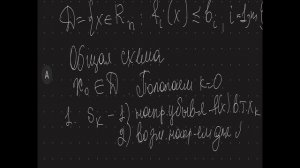 D={x∈Rₙ: fᵢ(x)≤bᵢ, i=1,m}
Общая схема
A
x₀∈D Полагаем k=0
1. Sₖ – 1) напр. убыв-я f(x) в т. xₖ
2) возм. напр-ем для